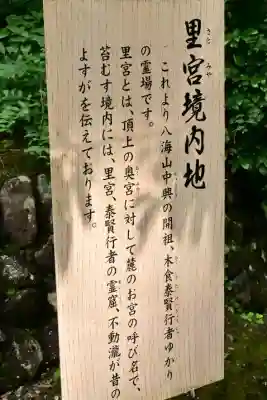 里宮境内地
さと みや
これより八海山中興の開祖、木食泰賢行者ゆかり
の霊場です。
里宮とは、頂上の奥宮に対して麓のお宮の呼び名で、
苔むす境内には、里宮、泰賢行者の霊窟、不動瀧が昔の
よすがを伝えております。